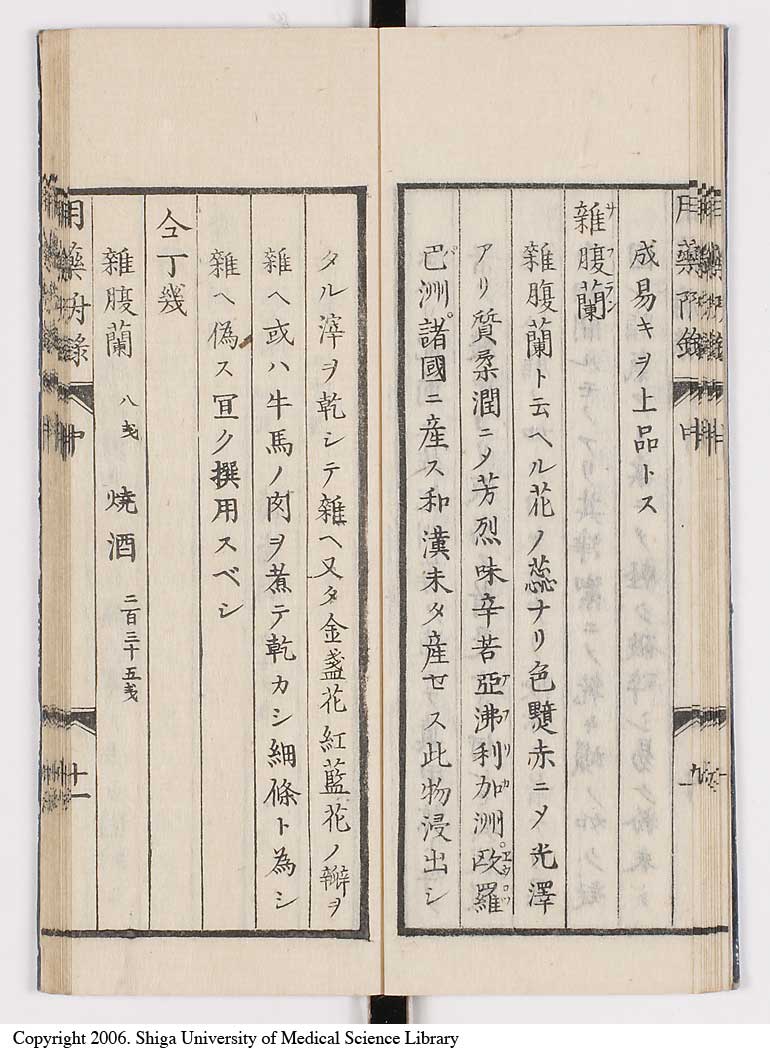 成易キヲ上品トス
雜腹蘭
サフラン
雜腹蘭ト云ヘル花ノ蕊ナリ色黯赤ニメ光澤
アリ質柔潤ニメ芳烈味辛苦亞沸利加洲歐羅
アフリカ エウロツ
巴洲諸國ニ産ス和漢未タ産セス此物浸出シ
パ
タル滓ヲ乾シテ雜ヘ又タ金盞花紅藍花ノ瓣ヲ
雜ヘ或ハ牛馬ノ肉ヲ煮テ乾カシ細條ト為シ
雜ヘ偽ス宜ク撰用スベシ
仝丁幾
雜腹蘭 八戔 焼酒 二百三十五戔
用藥 錄
十一
Copyright 2006. Shiga University of Medical Science Library